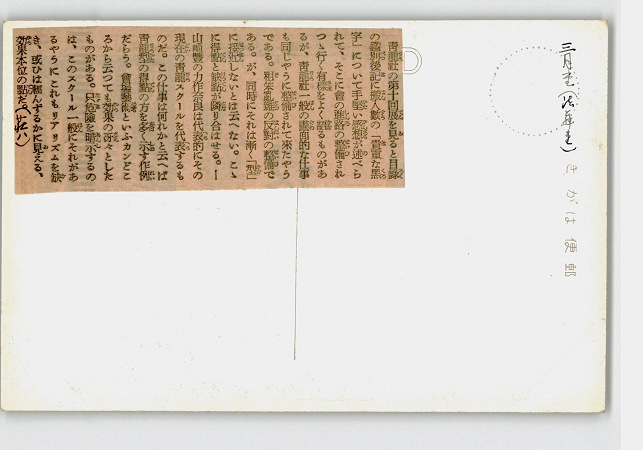 青龍社の第十回展を見ると目錄
の鑑別後記に搬入數の「貴重な黑
字」について手堅い感想が述べら
れて、そこに會の戰路の整備され
つゝ行く有樣をよく語るものがあ
るが、青龍社一般の畫面的な仕事
も同じやうに整備されて來たやう
である。粗朶亂雜の反對の整備で
ある。が、同時にそれは漸く「型」
に接近しないとは云へない。こゝ
に得點と缺點が隣り合はせる。—
山崎豐の力作奈良は代表的にその
現在の青龍スクールを代表するも
のだ。この仕事は何れかと云へば
青龍型の得點の方を多く示す作例
だらう。會場藝術といふカンどこ
ろから云つても効果の隆々とした
ものがある。只危險を暗示するの
は、このスクール一般にそれがあ
るやうにこれもリアリズムを缺
き、或ひは極んずるかに見える、
効果本位の點だ。
三月堂(法華堂)
きがは便郵